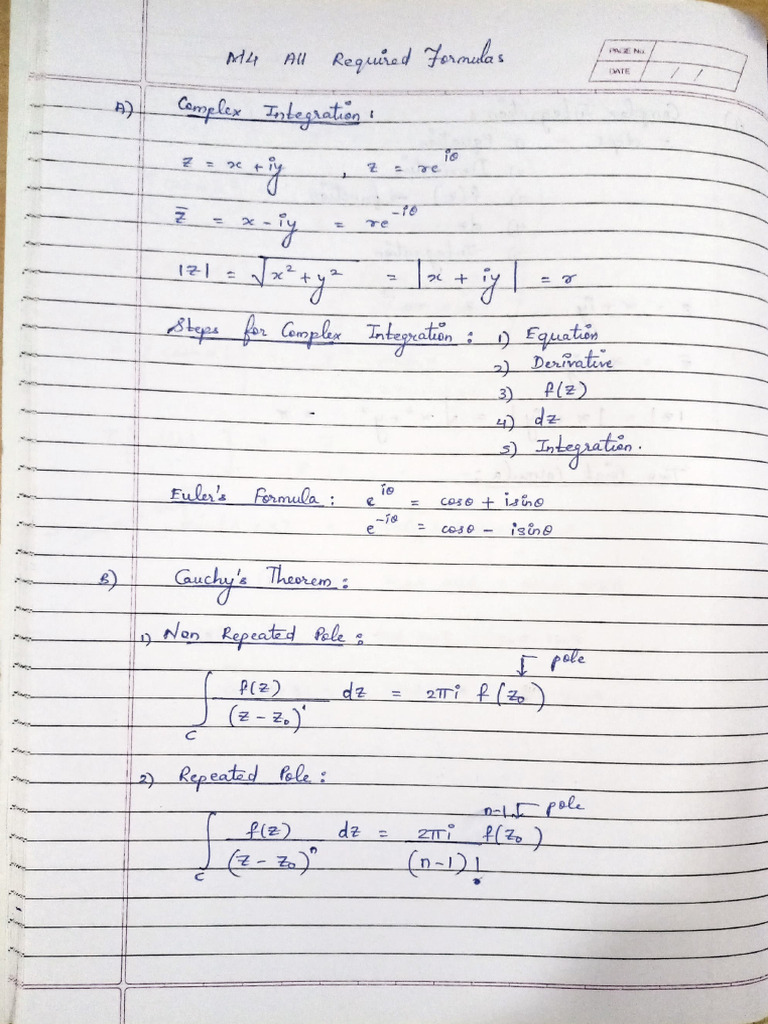 M4 All Required Formulas
PAGE No.
DATE / /
A) Complex Integration :
z = x + iy , z = re^{iθ}
z̄ = x - iy = re^{-iθ}
|z| = √(x² + y²) = |x + iy| = r
Steps for Complex Integration : 1) Equation
2) Derivative
3) f(z)
4) dz
5) Integration.
Euler's Formula : e^{iθ} = cosθ + isinθ
e^{-iθ} = cosθ - isinθ
B) Cauchy's Theorem :
1) Non Repeated Pole :
pole
∫_C f(z)/(z - z₀)¹ dz = 2πi f(z₀)
2) Repeated Pole :
pole
∫_C f(z)/(z - z₀)ⁿ dz = 2πi/(n-1)! f^{n-1}(z₀)